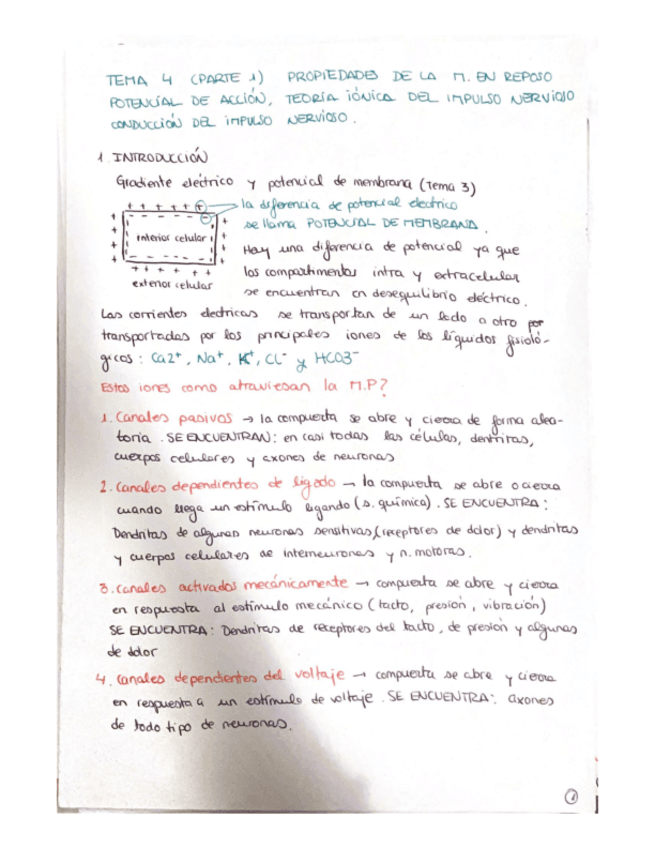 TEMA 4 (PARTE 1) PROPIEDADES DE LA M. EN REPOSO
POTENCIAL DE ACCIÓN, TEORÍA IÓNICA DEL IMPULSO NERVIOSO
CONDUCCIÓN DEL IMPULSO NERVIOSO.
1. INTRODUCCIÓN
Gradiente eléctrico y potencial de membrana (Tema 3)
+ + + + + +
la diferencia de potencial electrico
se llama POTENCIAL DE MEMBRANA.
interior celular
Hay una diferencia de potencial ya que
los compartimentos intra y extracelular
+ + + + + +
exterior celular
se encuentran en desequilibrio eléctrico.
Las corrientes electricas se transportan de un lado a otro por
transportadas por los principales iones de los líquidos fisioló-
gicos: Ca2+, Na+, K+, CL- y HCO3-
Estos iones como atraviesan la M.P?
1. Canales pasivos → la compuerta se abre y cierra de forma alea-
toria. SE ENCUENTRAN: en casi todas las células, dentritas,
cuerpos celulares y axones de neuronas
2. Canales dependientes de ligado → la compuerta se abre o cierra
cuando llega un estímulo ligando (s. química). SE ENCUENTRA:
Dendritas de algunas neuronas sensitivas (receptores de dolor) y dendritas
y cuerpos celulares de interneuronas y n. motoras.
3. canales activados mecánicamente → compuerta se abre y cierra
en respuesta al estímulo mecánico (tacto, presión, vibración)
SE ENCUENTRA: Dendritas de receptores del tacto, de presión y algunas
de dolor
4. Canales dependientes del voltaje → compuerta se abre y cierra
en respuesta a un estímulo de voltaje. SE ENCUENTRA: axones
de todo tipo de neuronas.
1